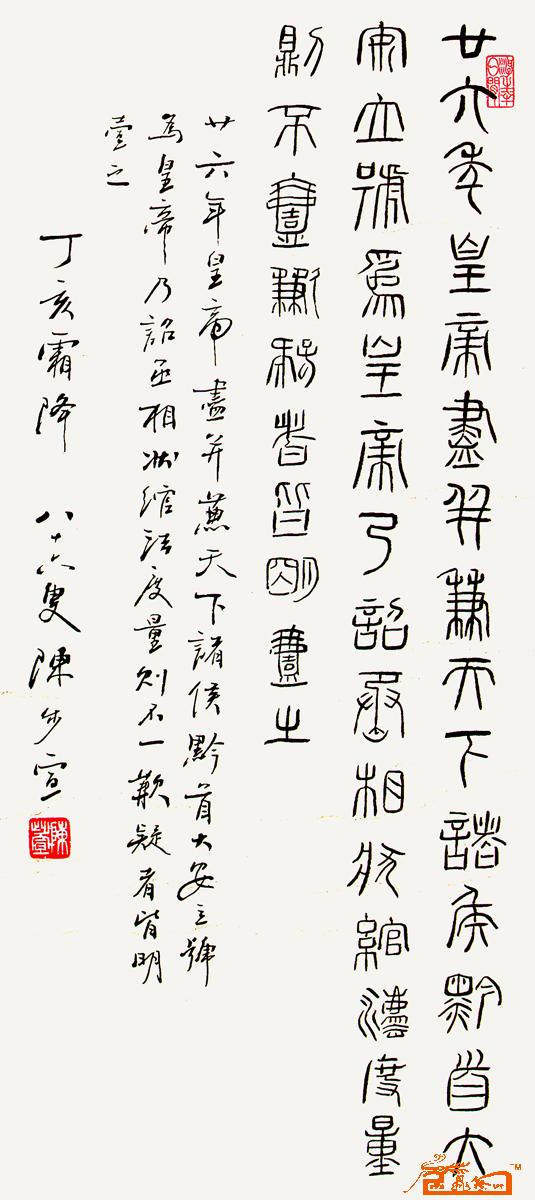 廿六年皇帝盡并兼天下諸侯黔首大
安立號爲皇帝乃詔丞相狀綰灋度量
鼎不壹歉疑者皆明壹之
廿六年皇帝盡并兼天下諸侯黔首大安立號
為皇帝乃詔丞相狀綰法度量则不一歉疑者皆明
壹之
丁亥霜降 八十六叟陳步宣